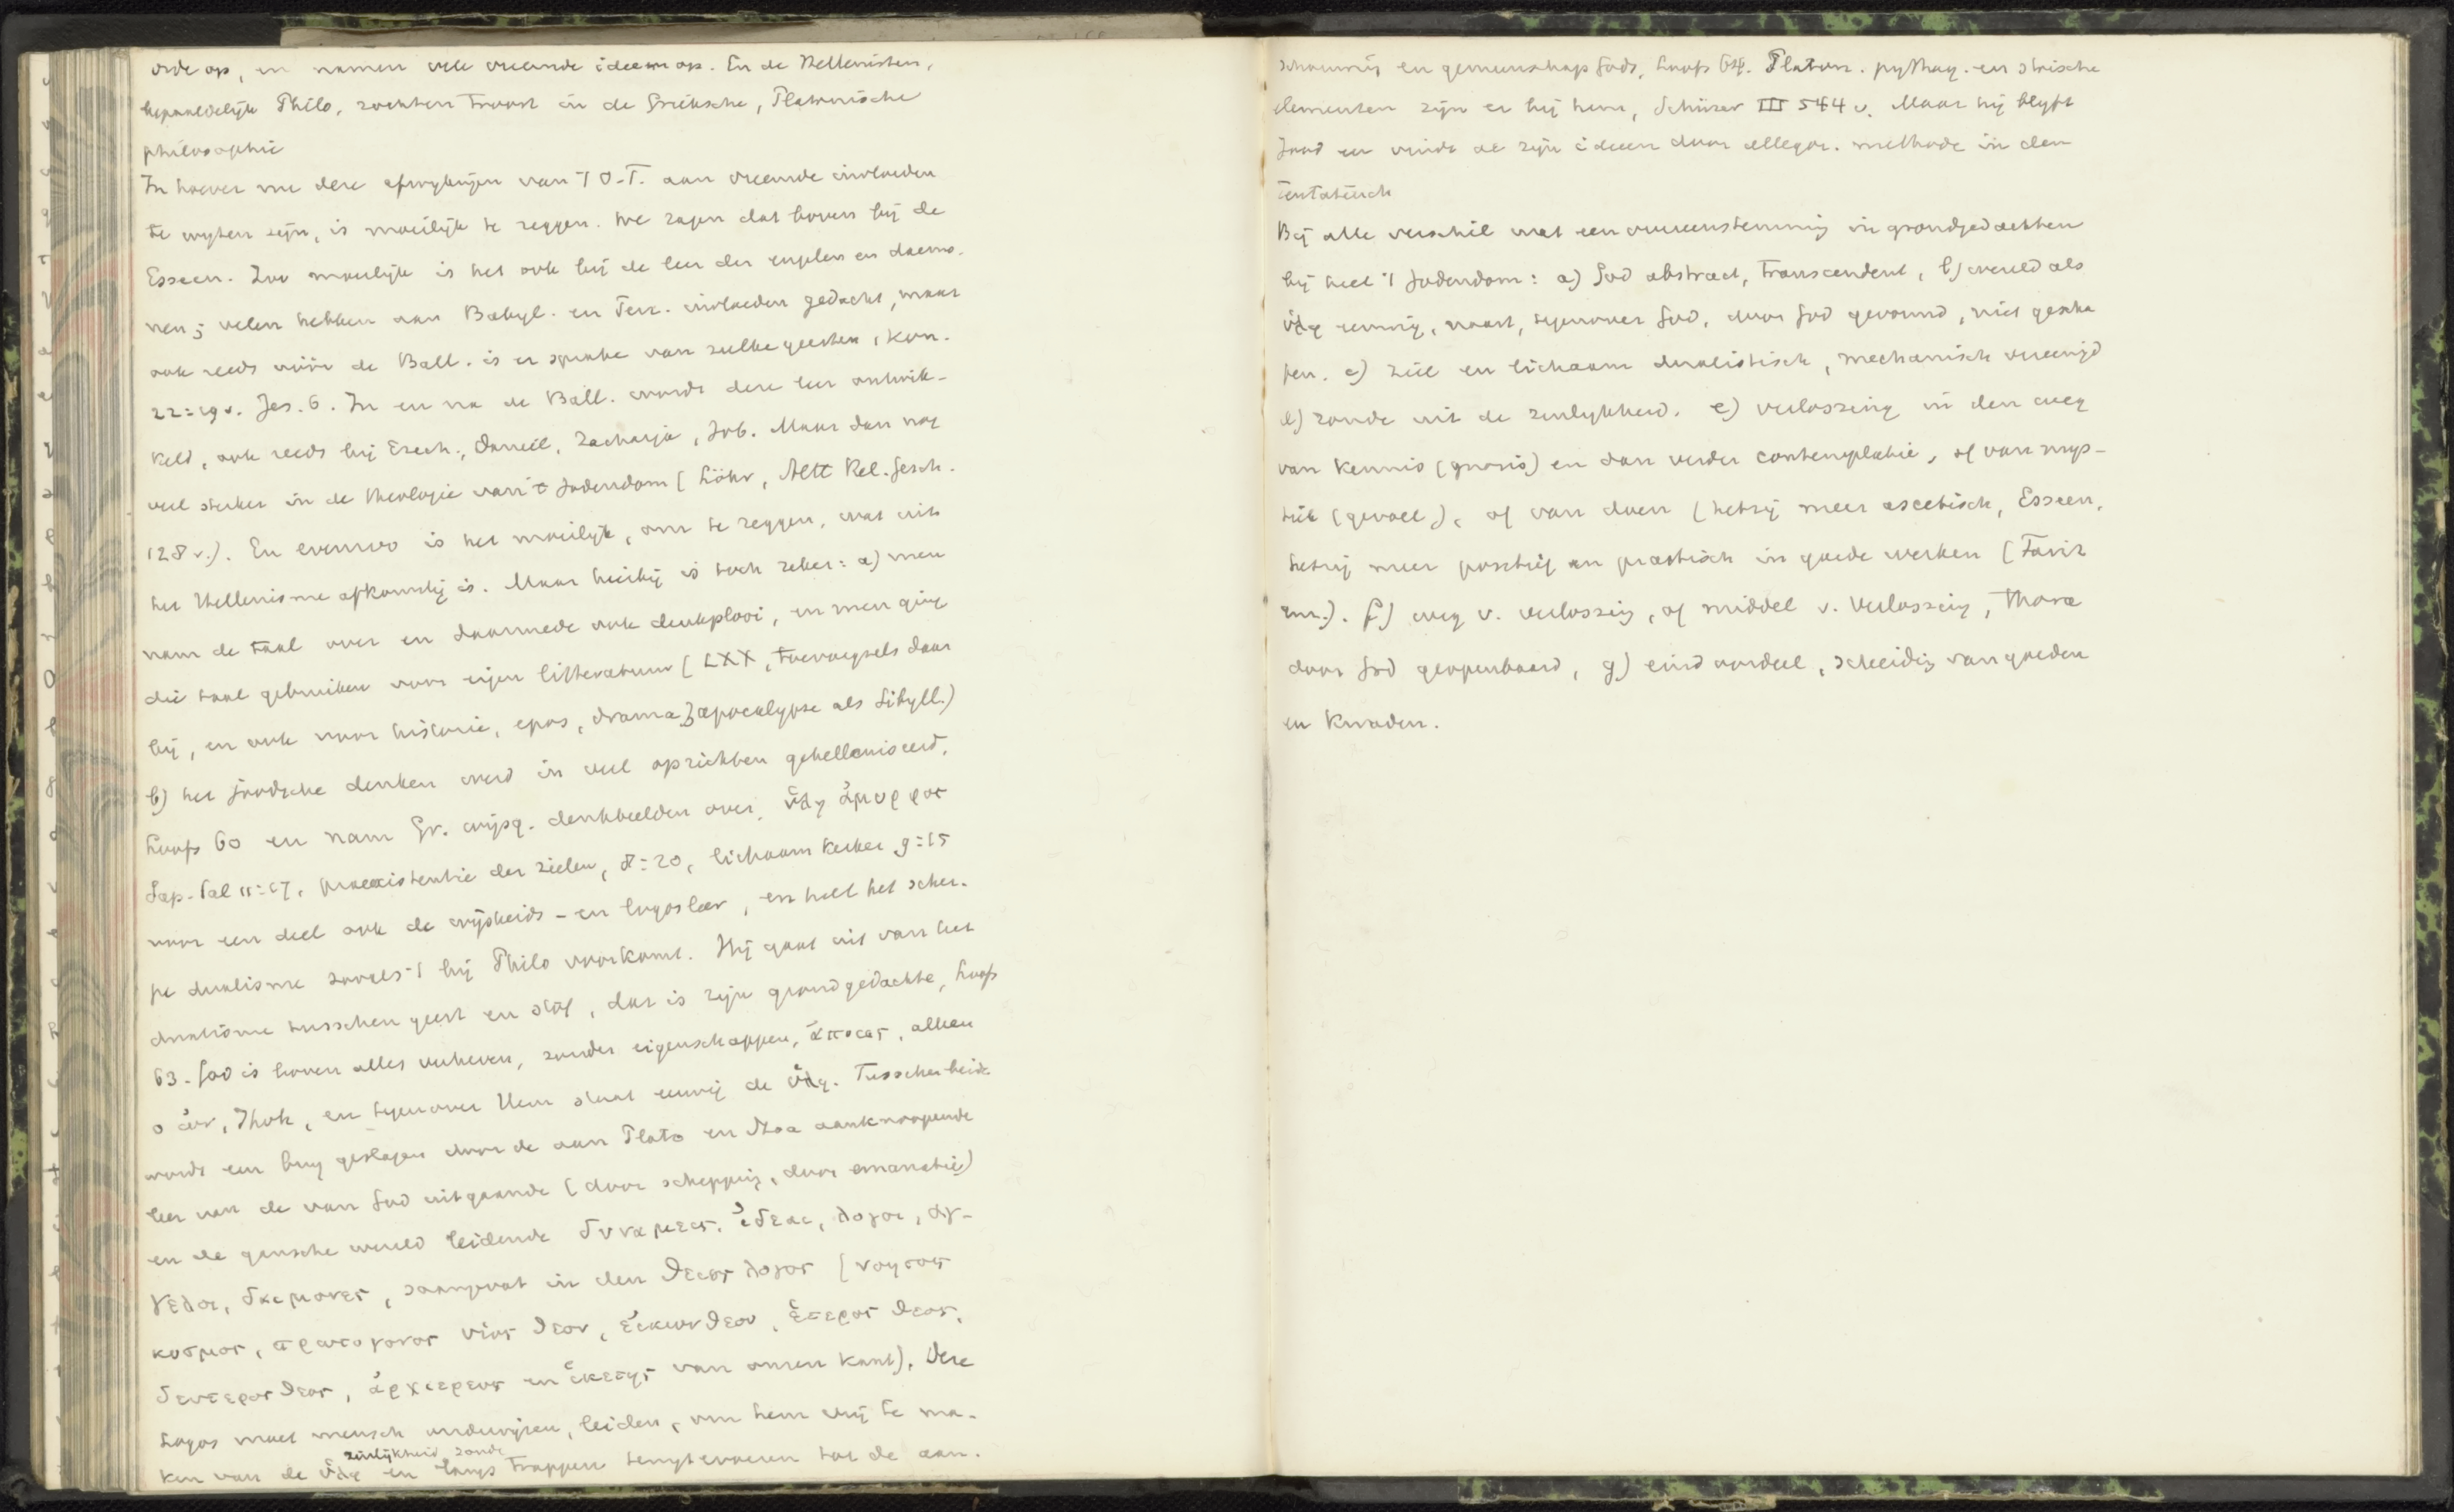 orde op, en namen vele vreemde ideeen op. En de Hellenisten,
bepaaldelijk Philo, zochten troost in de Grieksche, Platonische
philosophie
In hoever nu deze afwijkingen van 't O.T. aan vreemde invloeden
te wijten zijn, is moeilijk te zeggen. We zagen dat boven bij de
Esseen. Zoo moeilijk is het ook bij de leer der engelen en daemo-
nen; velen hebben aan Babyl. en Perz. invloeden gedacht, maar
ook reeds vóór de Ball. is er sprake van zulke geesten, Kon.
22:19v. Jes. 6. In en na de Ball. wordt deze leer ontwik-
keld, ook reeds bij Ezech., Daniel, Zacharja, Job. Maar dan nog
veel sterker in de theologie van 't Jodendom (Löhr, Altt Rel. Gesch.
128 v.). En evenzoo is het moeilijk, om te zeggen, wat uit
het Hellenisme afkomstig is. Maar hierbij is toch zeker: a) men
nam de taal over en daarmede ook denkplooi, en men ging
die taal gebruiken voor eigen litteratuur (LXX, toevoegsels daar
bij, en ook voor historie, epos, drama, apocalypse als Sibyll.)
b) het joodsche denken werd in veel opzichten gehelleniseerd,
Loofs 60 en nam Gr. wijsg. denkbeelden over, ὕλη ἀμορφος
Sap. Sal 11:17, praeexistentie der zielen, 8:20, lichaam kerker 9:15
voor een deel ook de wijsheids- en logosleer, en heel het scher-
pe dualisme zooals 't bij Philo voorkomt. Hij gaat uit van het
dualisme tusschen geest en stof, dat is zijn grondgedachte, Loofs
63. God is boven alles verheven, zonder eigenschappen, ἀποιος, alleen
ὁ ὠν, Jhvh, en tegenover Hem staat eeuwig de ὕλη. Tusschen beide
wordt een brug geslagen door de aan Plato en Stoa aanknoopende
leer van de van God uitgaande (door schepping, door emanatie)
en de gansche wereld leidende δυναμεις, ἰδεαι, λογοι, ἀγ-
γελοι, δαιμονες, saamgevat in den θειος λογος (νοητος
κοσμος, πρωτογονος υἱος θεου, εἰκων θεου, ἑτερος θεος,
δευτερος θεος, ἀρχιερευς en ἱκετης van onzen kant). Deze
Logos moet mensch onderwijzen, leiden, om hem vrij te ma-
zinlijkheid, zonde
ken van de ὕλη en langs trappen terugtevoeren tot de aan-
schouwing en gemeenschap Gods, Loofs 64. Platon. pythag. en stoische
elementen zijn er bij hem, Schürer III 544 v. Maar hij blyft
Jood en vindt al zijn ideen door allegor. methode in den
Pentateuch
Bij alle verschil met een overeenstemming in grondgedachten
bij heel 't Jodendom: a) God abstract, transcendent, b) wereld als
ὕλη eeuwig, naast, tegenover God, door God gevormd, niet gescha
pen. c) ziel en lichaam dualistisch, mechanisch vereenigd
d) zonde uit de zinlykheid. e) verlossing in den weg
van kennis (gnosis) en dan verder contemplatie, of van mys-
tiek (gevoel), of van doen (hetzij meer ascetisch, Esseen,
hetzij meer positief en practisch in goede werken (Fariz
een.). f) weg v. verlossing, of middel v. verlossing, thora
door God geopenbaard, g) eindoordeel, scheiding van goeden
en kwaden.